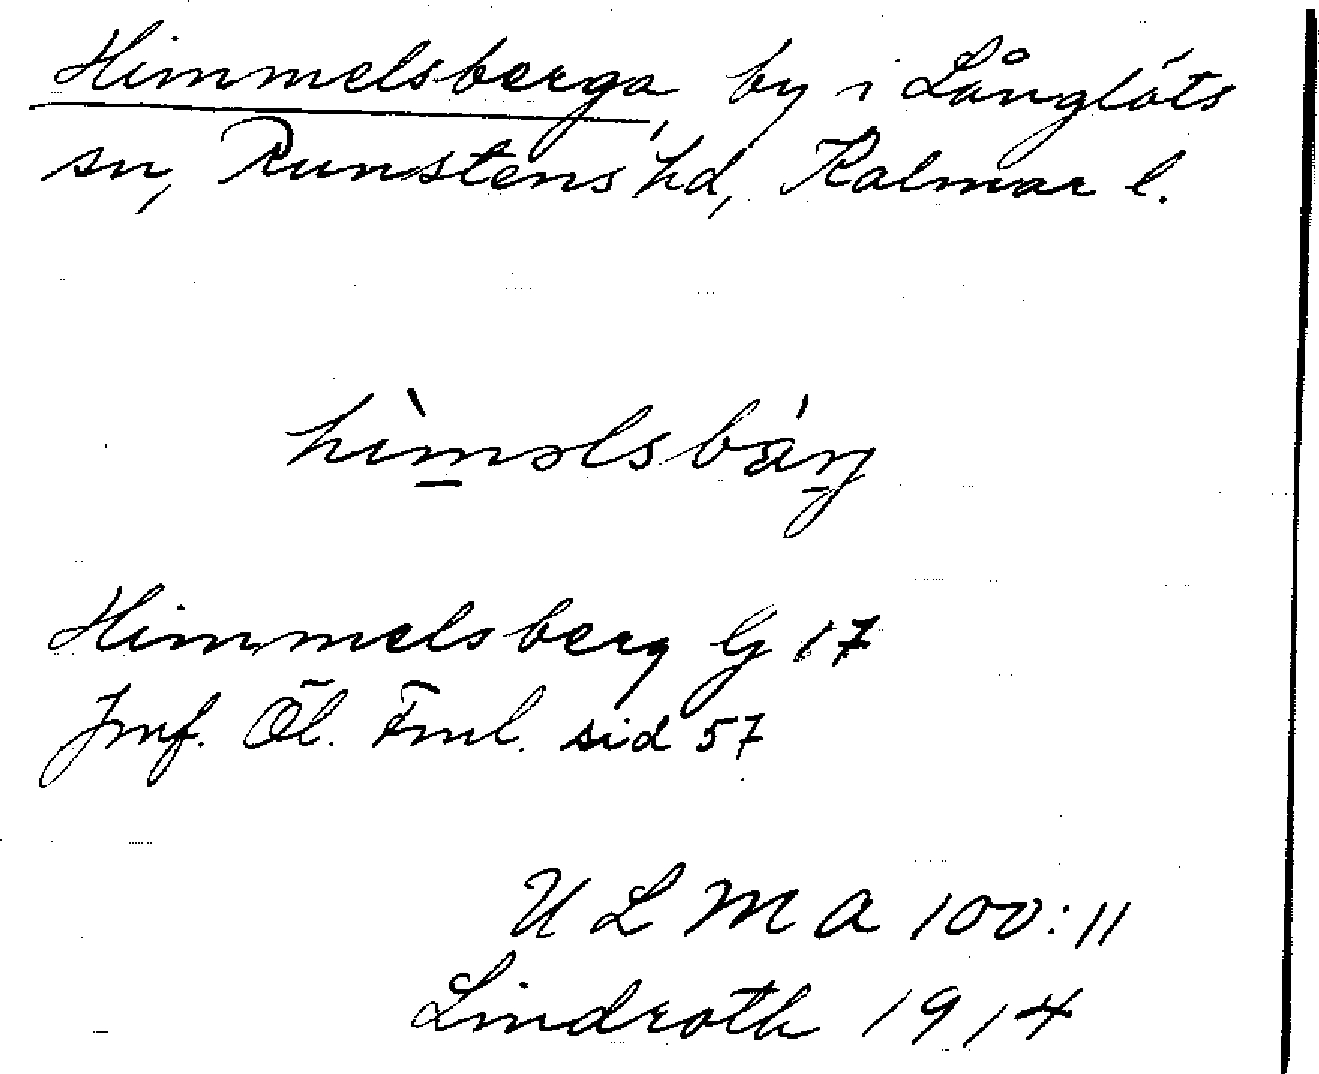 Himmelsberga, by i Långlöts
sn, Runstens hd, Kalmar l.
hìməlsbárj
Himmelsberg G 17
Jmf. Öl. Fml. sid 57
ULMA 100:11
Lindroth 1914